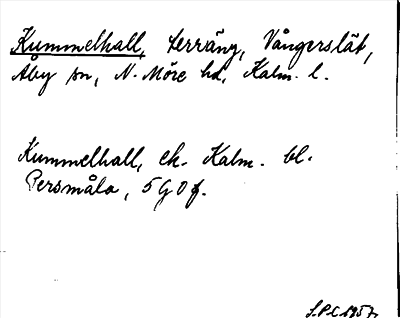 Kummelhall, terräng, Vångerslät,
Åby sn, N. Möre hd, Kalm. l.
Kummelhall, ek. Kalm. bl.
Persmåla, 5G0f.